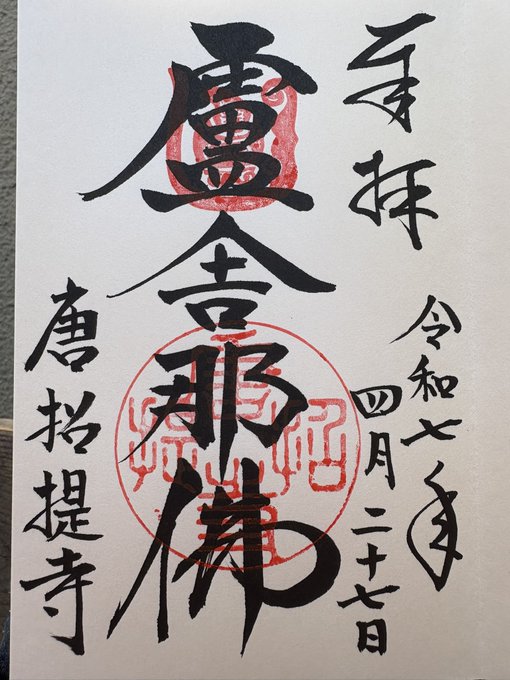 奉拝
令和七年
四月二十七日
盧舎那佛
唐招提寺